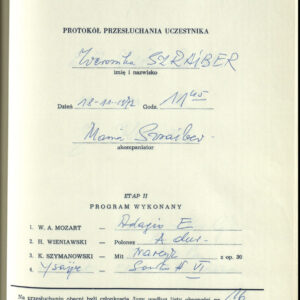 PROTOKÓŁ PRZESŁUCHANIA UCZESTNIKA
Weronika SZRAIBER
imię i nazwisko
Dzień 18-11-1972 Godz. 11 45
Maria Szraiber
akompaniator
ETAP II
PROGRAM WYKONANY
1. W. A. MOZART — Adagio E
2. H. WIENIAWSKI — Polonez A dur
3. K. SZYMANOWSKI — Mit Narcyz z op. 30
4. Ysaye — Sonata VI
Na przesłuchaniu obecni byli członkowie Jury według listy obecności nr 16